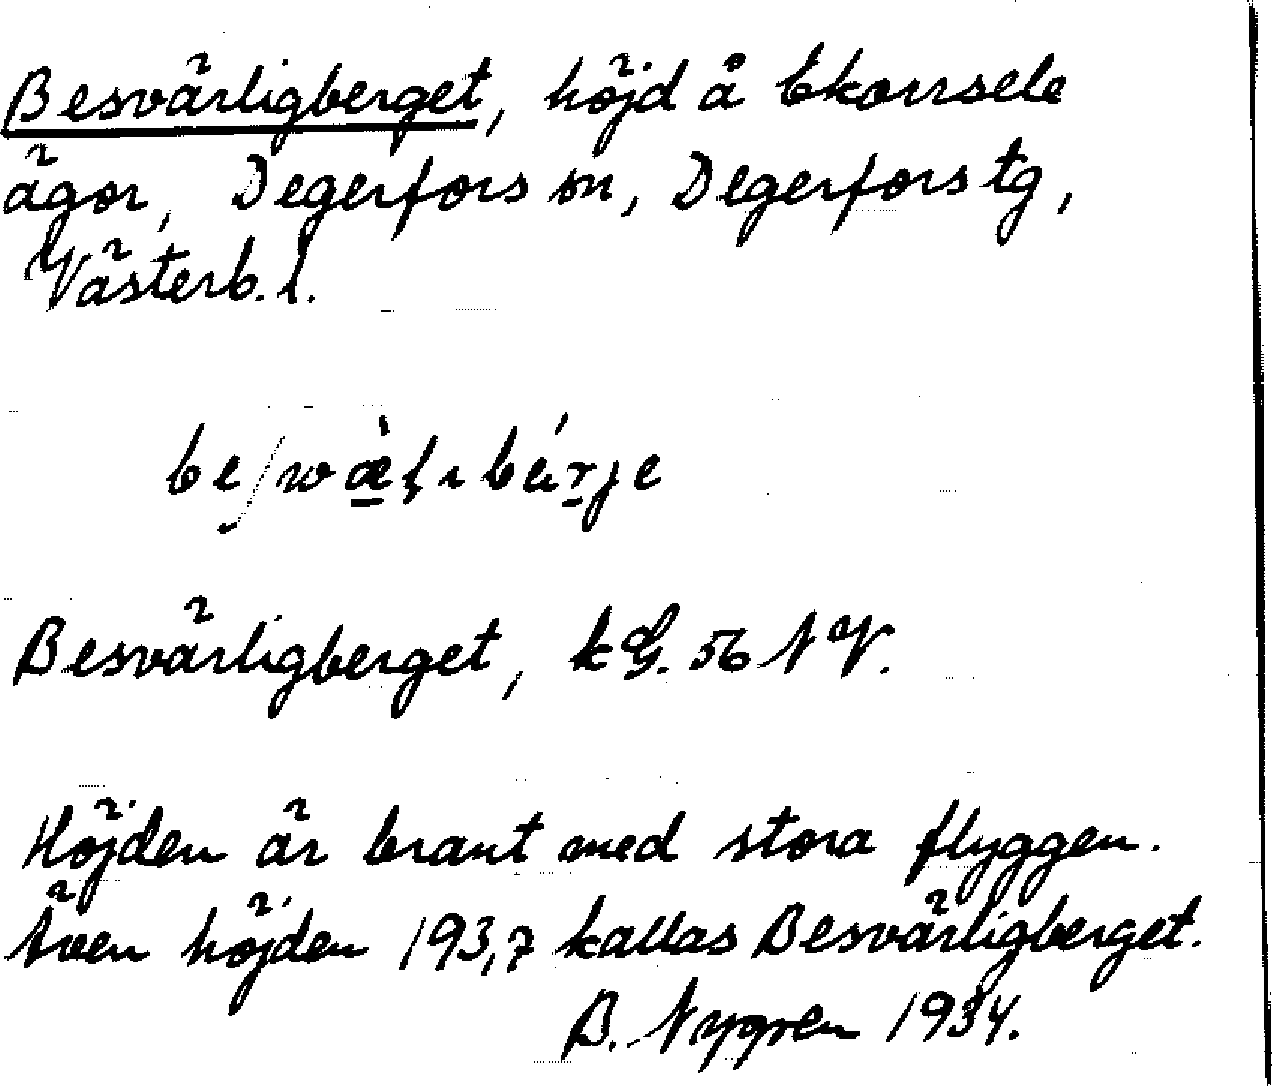 Besvärligberget, höjd å Ekorrsele
ägor, Degerfors sn, Degerfors tg,
Västerb. l.
Besvärligberget, kG. 56 NV.
Höjden är brant med stora flyggen.
Även höjden 193,7 kallas Besvärligberget.
B. Nygren 1934.